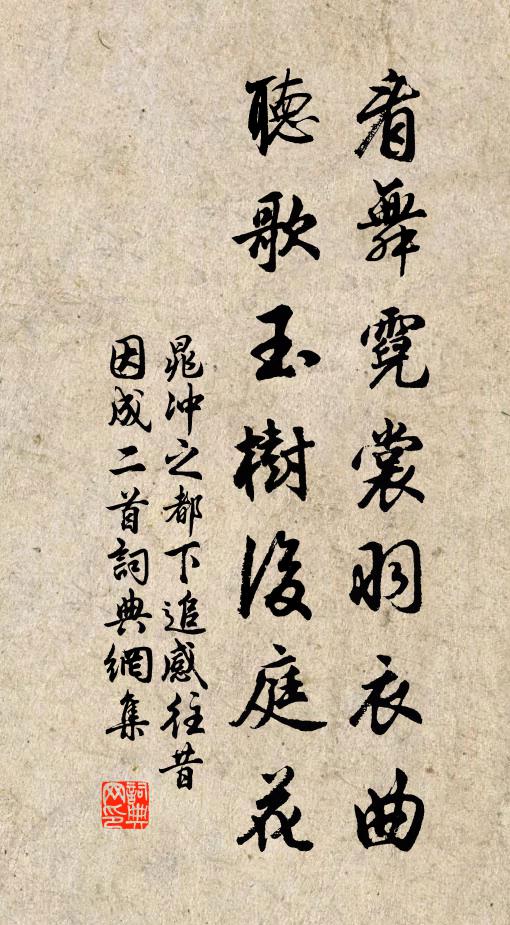 看舞霓裳羽衣曲
聽歌玉樹後庭花
晁沖之都下追感往昔
因成二首詞典網集
詞典
网印